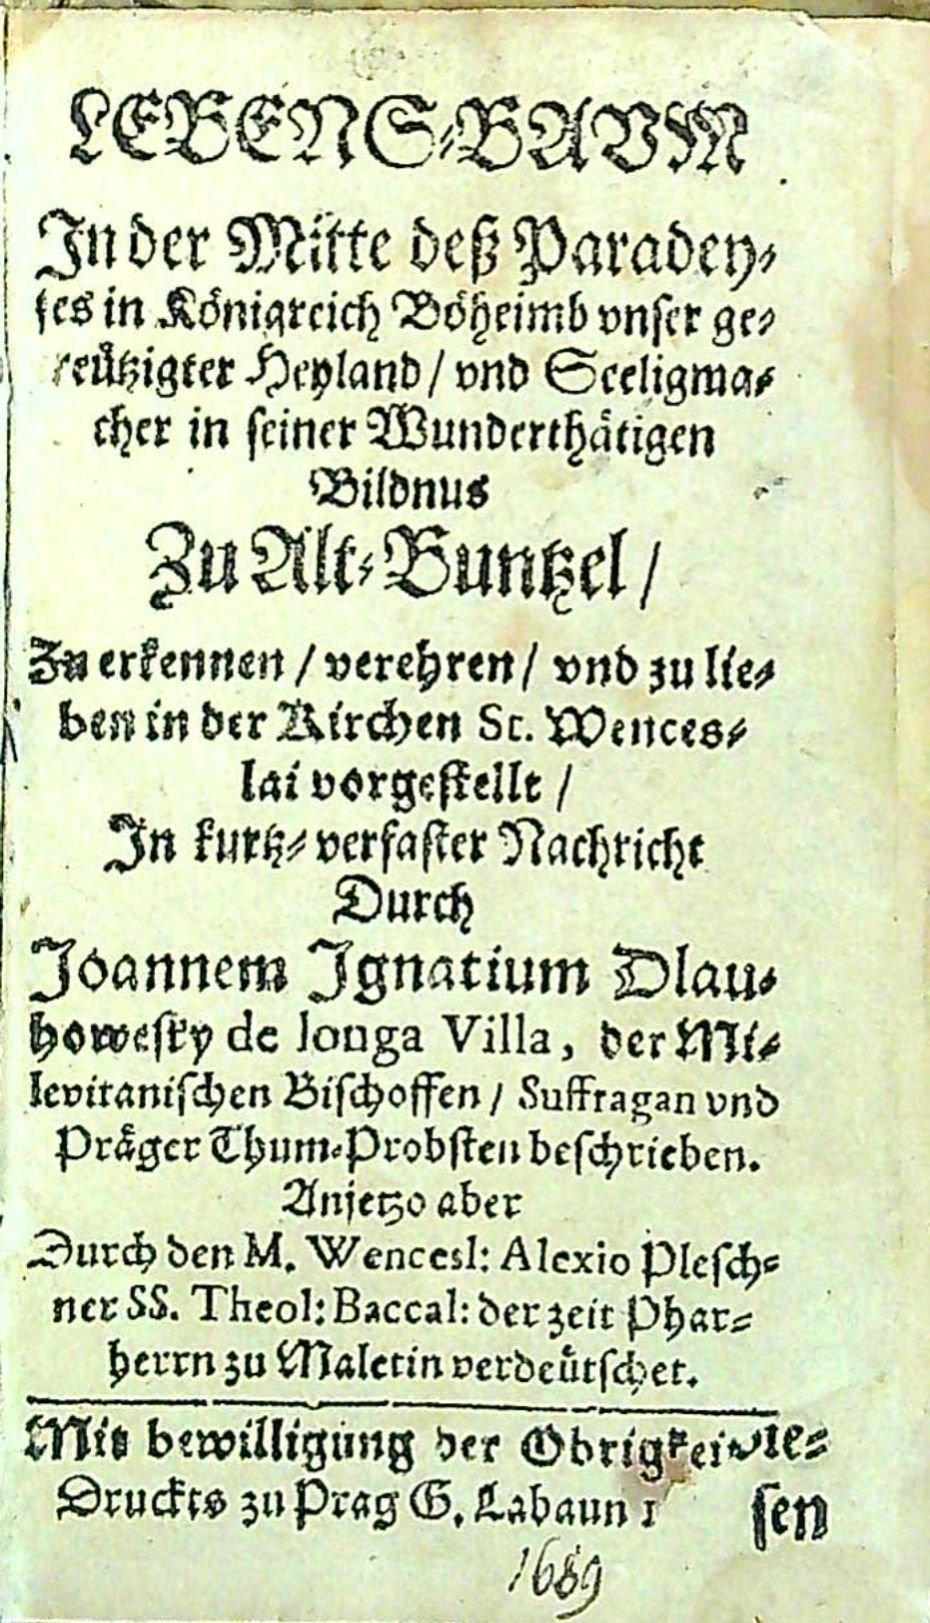 LEBENS-BAVM
In der Mitte deß Paradey-
ses in Königreich Böheimb vnser ge-
reützigter Heyland / vnd Seeligma-
cher in seiner Wunderthätigen
Bildnus
Zu Alt-Buntzel /
Zu erkennen / verehren / vnd zu lie-
ben in der Kirchen St. Wences-
lai vorgestellt /
In kurtz-verfaster Nachricht
Durch
Joannem Ignatium Dlau-
howesky de longa Villa, der Mi-
levitanischen Bischoffen / Suffragan vnd
Präger Thum-Probsten beschrieben.
Anjetzo aber
Durch den M. Wencesl: Alexio Plesch-
ner SS. Theol: Baccal: der zeit Phar-
herrn zu Maletin verdeütschet.
Mit bewilligung der Obrigkei
Druckts zu Prag G. Labaun 1
sen
1689